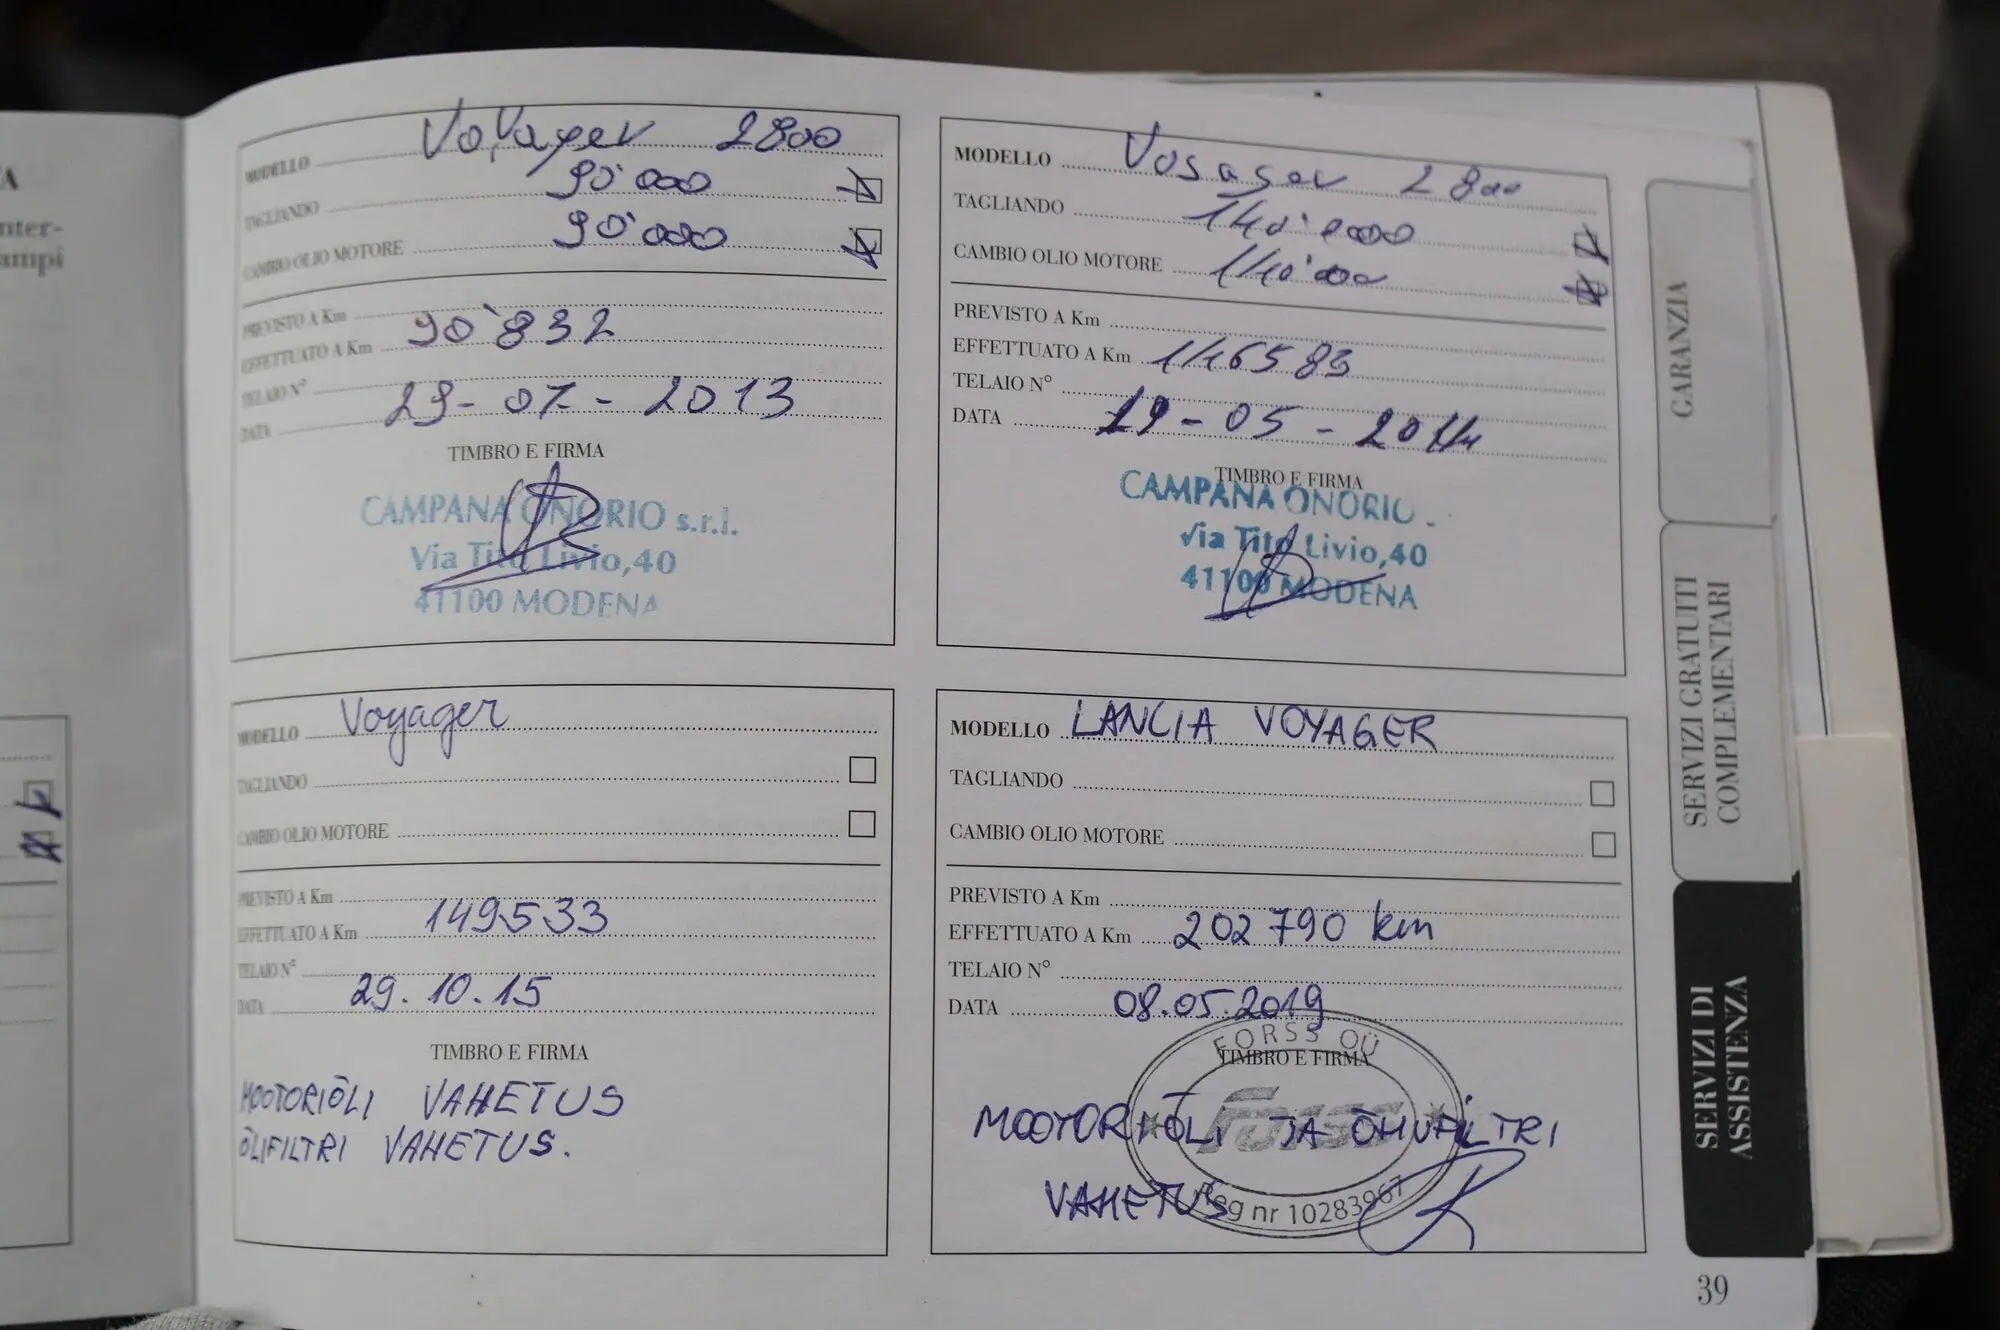 A
nter-
ampi
MODELLO Voyager 2800
TAGLIANDO 90'000
CAMBIO OLIO MOTORE 90'000
PREVISTO A Km
EFFETTUATO A Km 90'832
TELAIO N°
DATA 29-07-2013
TIMBRO E FIRMA
CAMPANA ONORIO s.r.l.
Via Tito Livio,40
41100 MODENA
MODELLO Voyager 2800
TAGLIANDO
CAMBIO OLIO MOTORE
PREVISTO A Km
EFFETTUATO A Km 116583
TELAIO N°
DATA 19-05-2014
TIMBRO E FIRMA
CAMPANA ONORIO
Via Tito Livio,40
41100 MODENA
MODELLO Voyager
TAGLIANDO
CAMBIO OLIO MOTORE
PREVISTO A Km
EFFETTUATO A Km 149533
TELAIO N°
DATA 29.10.15
TIMBRO E FIRMA
MOOTORIÕLI VAHETUS
ÕLIFILTRI VAHETUS.
MODELLO LANCIA VOYAGER
TAGLIANDO
CAMBIO OLIO MOTORE
PREVISTO A Km
EFFETTUATO A Km 202790 km
TELAIO N°
DATA 08.05.2019
FORSS OÜ
TIMBRO E FIRMA
Forss
MOOTORIÕLI JA ÕHUFILTRI
VAHETUS
Reg nr 10283967
GARANZIA
SERVIZI GRATUITI
COMPLEMENTARI
SERVIZI DI
ASSISTENZA
39